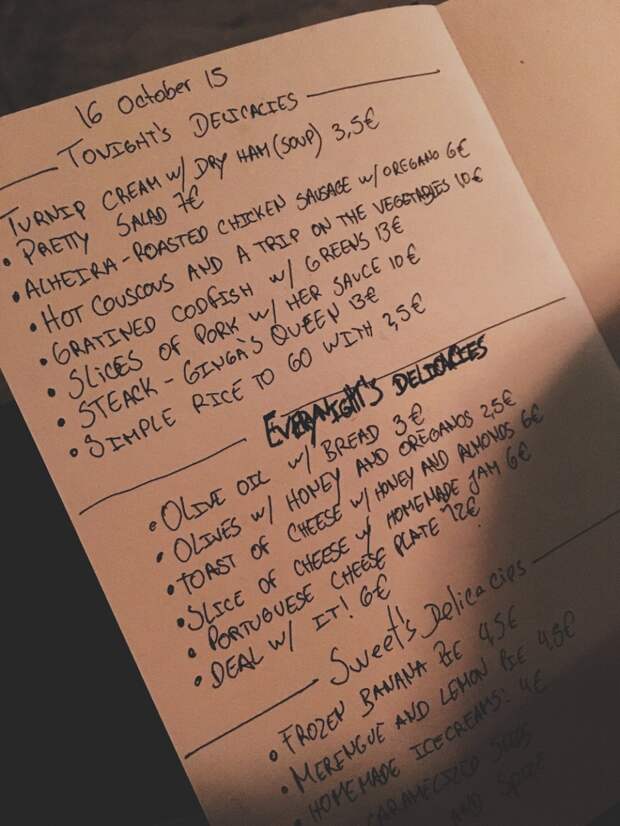 16 October 15
TONIGHT'S DELICACIES
TURNIP CREAM w/ DRY HAM (SOUP) 3,5€
• PRETTY SALAD 7€
• ALHEIRA - ROASTED CHICKEN SAUSAGE w/ OREGANO 6€
• HOT COUSCOUS AND A TRIP ON THE VEGETABLES 10€
• GRATINED CODFISH w/ GREENS 13€
• SLICES OF PORK w/ HER SAUCE 10€
• STEACK - GINGA'S QUEEN 13€
• SIMPLE RICE TO GO WITH 2,5€
EVERYNIGHT'S DELICACIES
• OLIVE OIL w/ BREAD 3€
• OLIVES w/ HONEY AND OREGANOS 2,5€
• TOAST OF CHEESE w/ HONEY AND ALMONDS 6€
• SLICE OF CHEESE w/ HOMEMADE JAM 6€
• PORTUGUESE CHEESE PLATE 12€
• DEAL w/ IT! 6€
Sweet's Delicacies
• FROZEN BANANA PIE 4,5€
• MERINGUE AND LEMON PIE 4,5€
• HOMEMADE ICECREAMS: 4€
CARAMELISED
AND